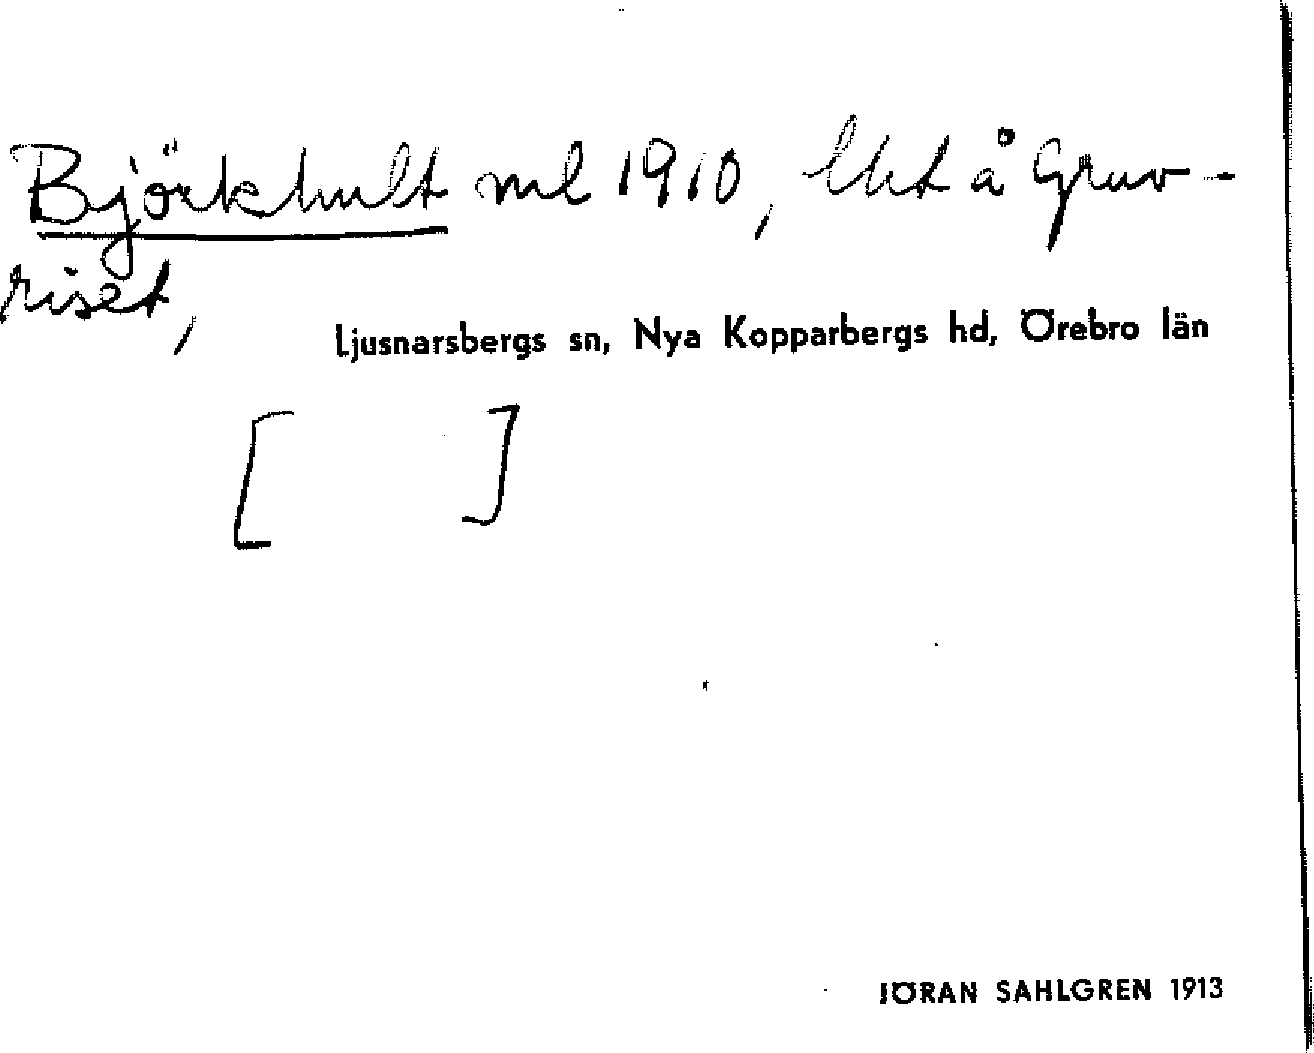 Björkhult ml 1910, lht å Gruv-
riset,
Ljusnarsbergs sn, Nya Kopparbergs hd, Örebro län
[ ]
JÖRAN SAHLGREN 1913